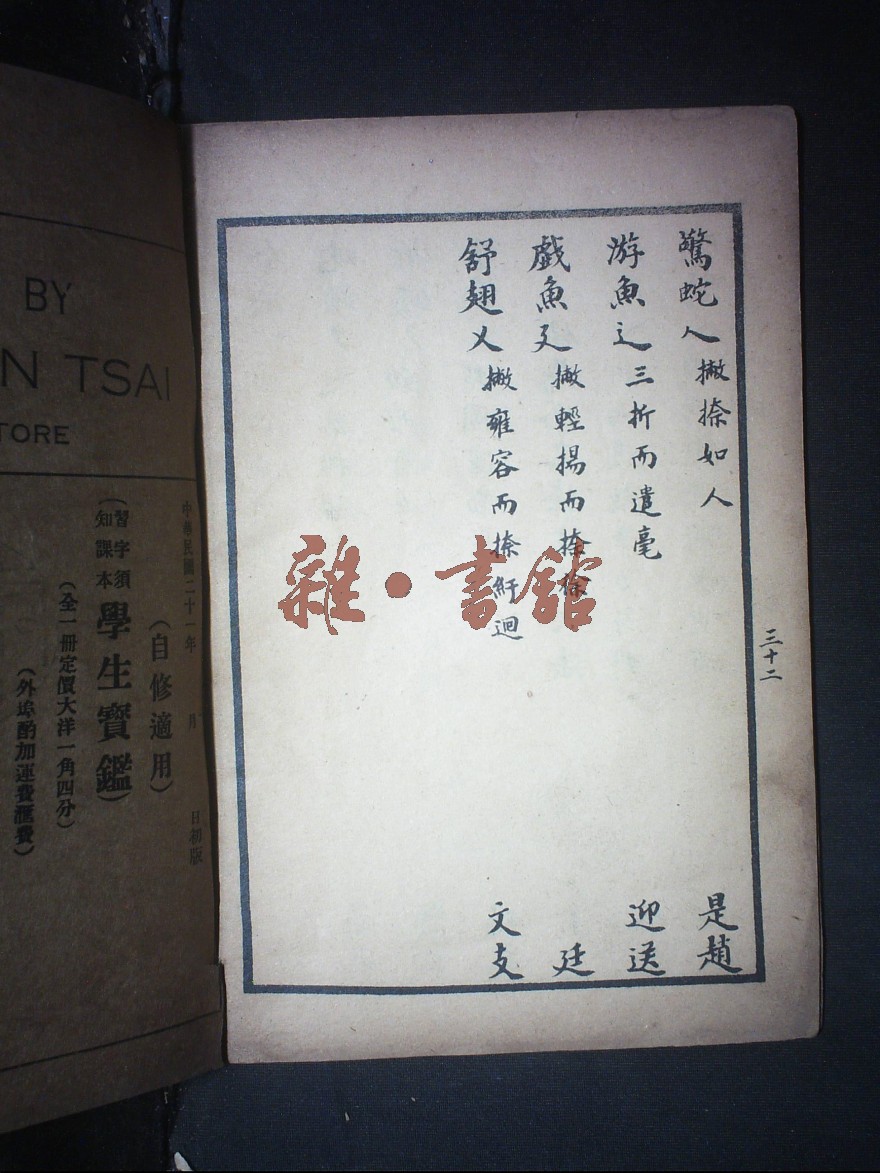 驚蛇人撇捺如人 是趙
游魚辶三折而遣毫 迎送
戲魚廴撇輕揚而捺 廷
舒翅乂撇雍容而捺紆迴 文支
三十二
雜·書館
中華民國二十一年 月 日初版
(自修適用)
(習字須知課本 學生寶鑑)
(全一冊定價大洋一角四分)
(外埠酌加運費匯費)
BY
N TSAI
TORE